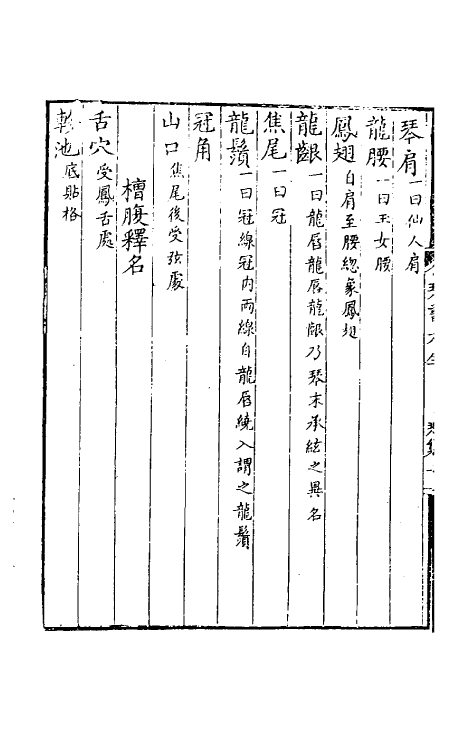 琴肩一曰仙人肩
龍腰一曰玉女腰
鳳翅自肩至腰緫象鳳翅
龍齦一曰龍唇龍唇龍齦乃琴末承絃之異名
焦尾一曰冠
龍鬚一曰冠線冠内兩線自龍唇繞入謂之龍鬚
冠角
山口焦尾後受弦處
槽腹釋名
舌穴受鳳舌處
軫池底貼格